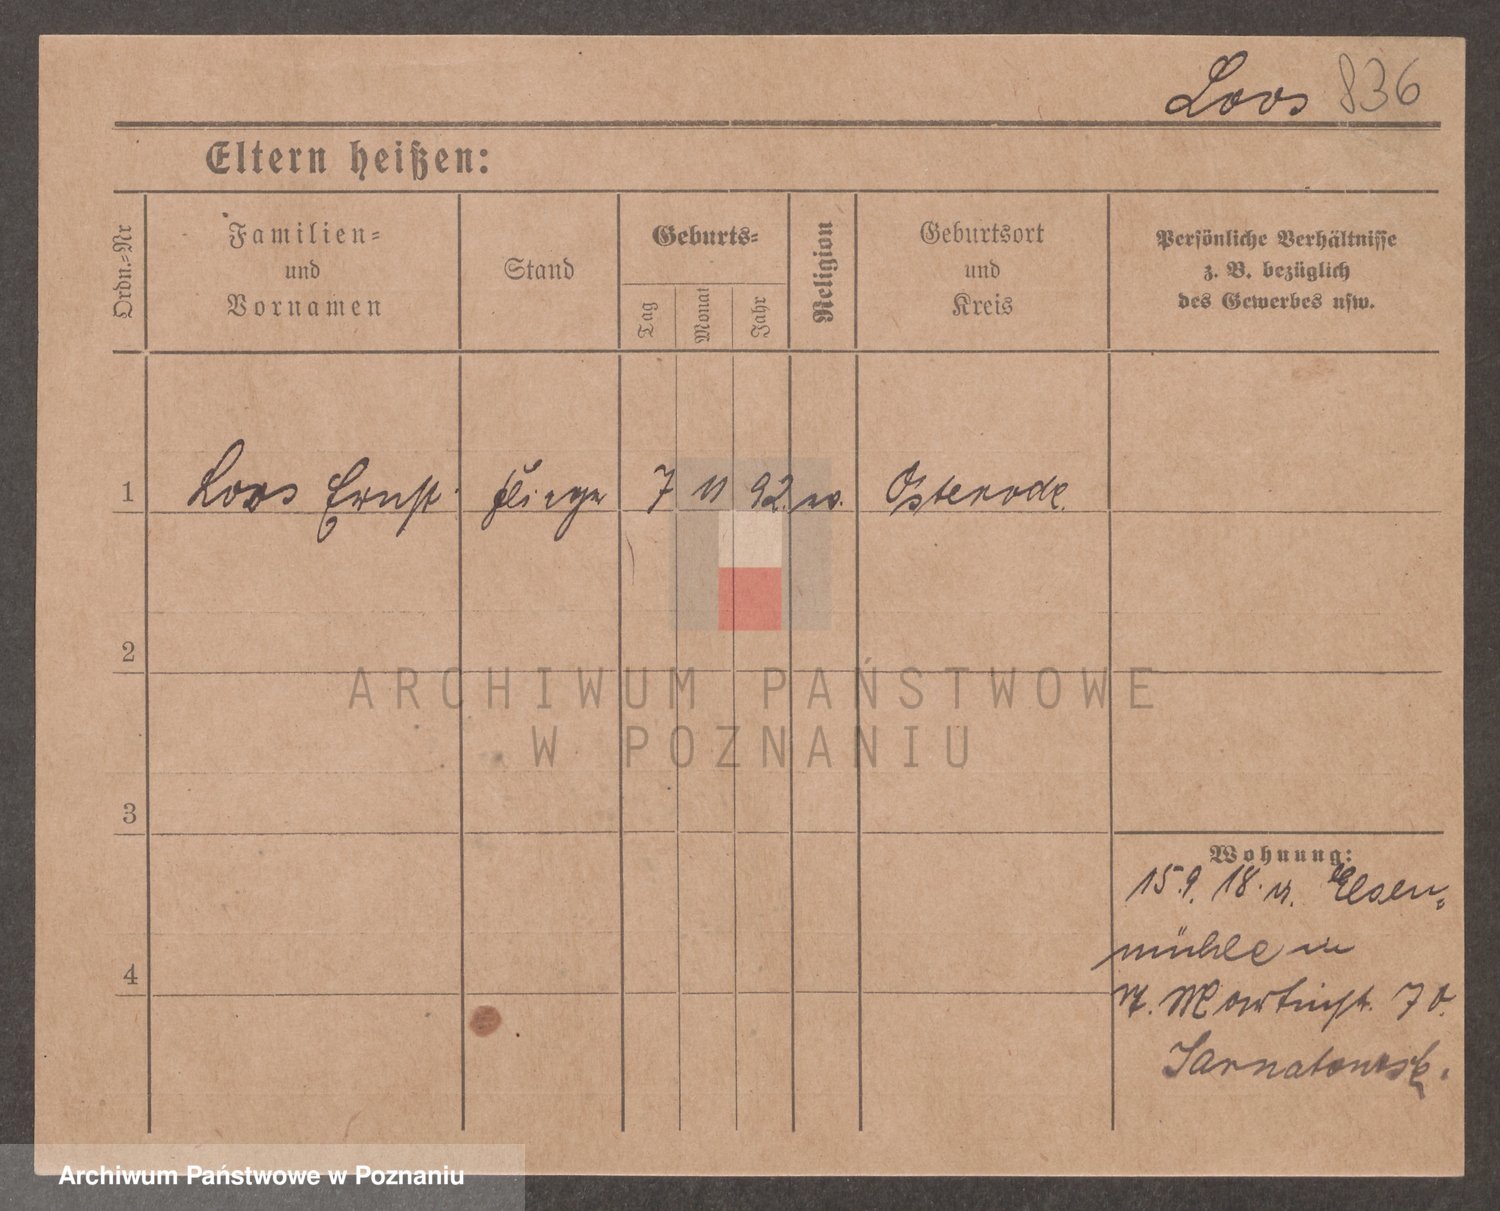 Loos 836
Eltern heißen:
Ordn.=Nr
Familien=
und
Vornamen
Stand
Geburts=
Tag
Monat
Jahr
Religion
Geburtsort
und
Kreis
Persönliche Verhältnisse
z. B. bezüglich
des Gewerbes usw.
1 Loos Ernst. Flieger 7 11 92. ev. Osterode.
2
3
4
Wohnung:
15.9. 18. v. Elsen=
mühle
n. Martinst. 70.
Sarnatowsk.
ARCHIWUM PAŃSTWOWE
W POZNANIU
Archiwum Państwowe w Poznaniu